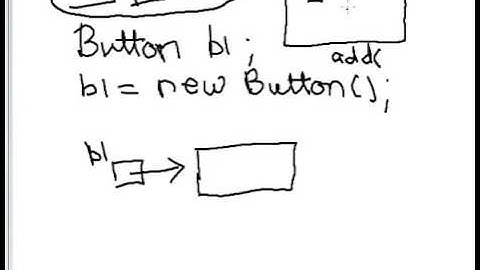 Button b1;
add(
b1 = new Button();
b1